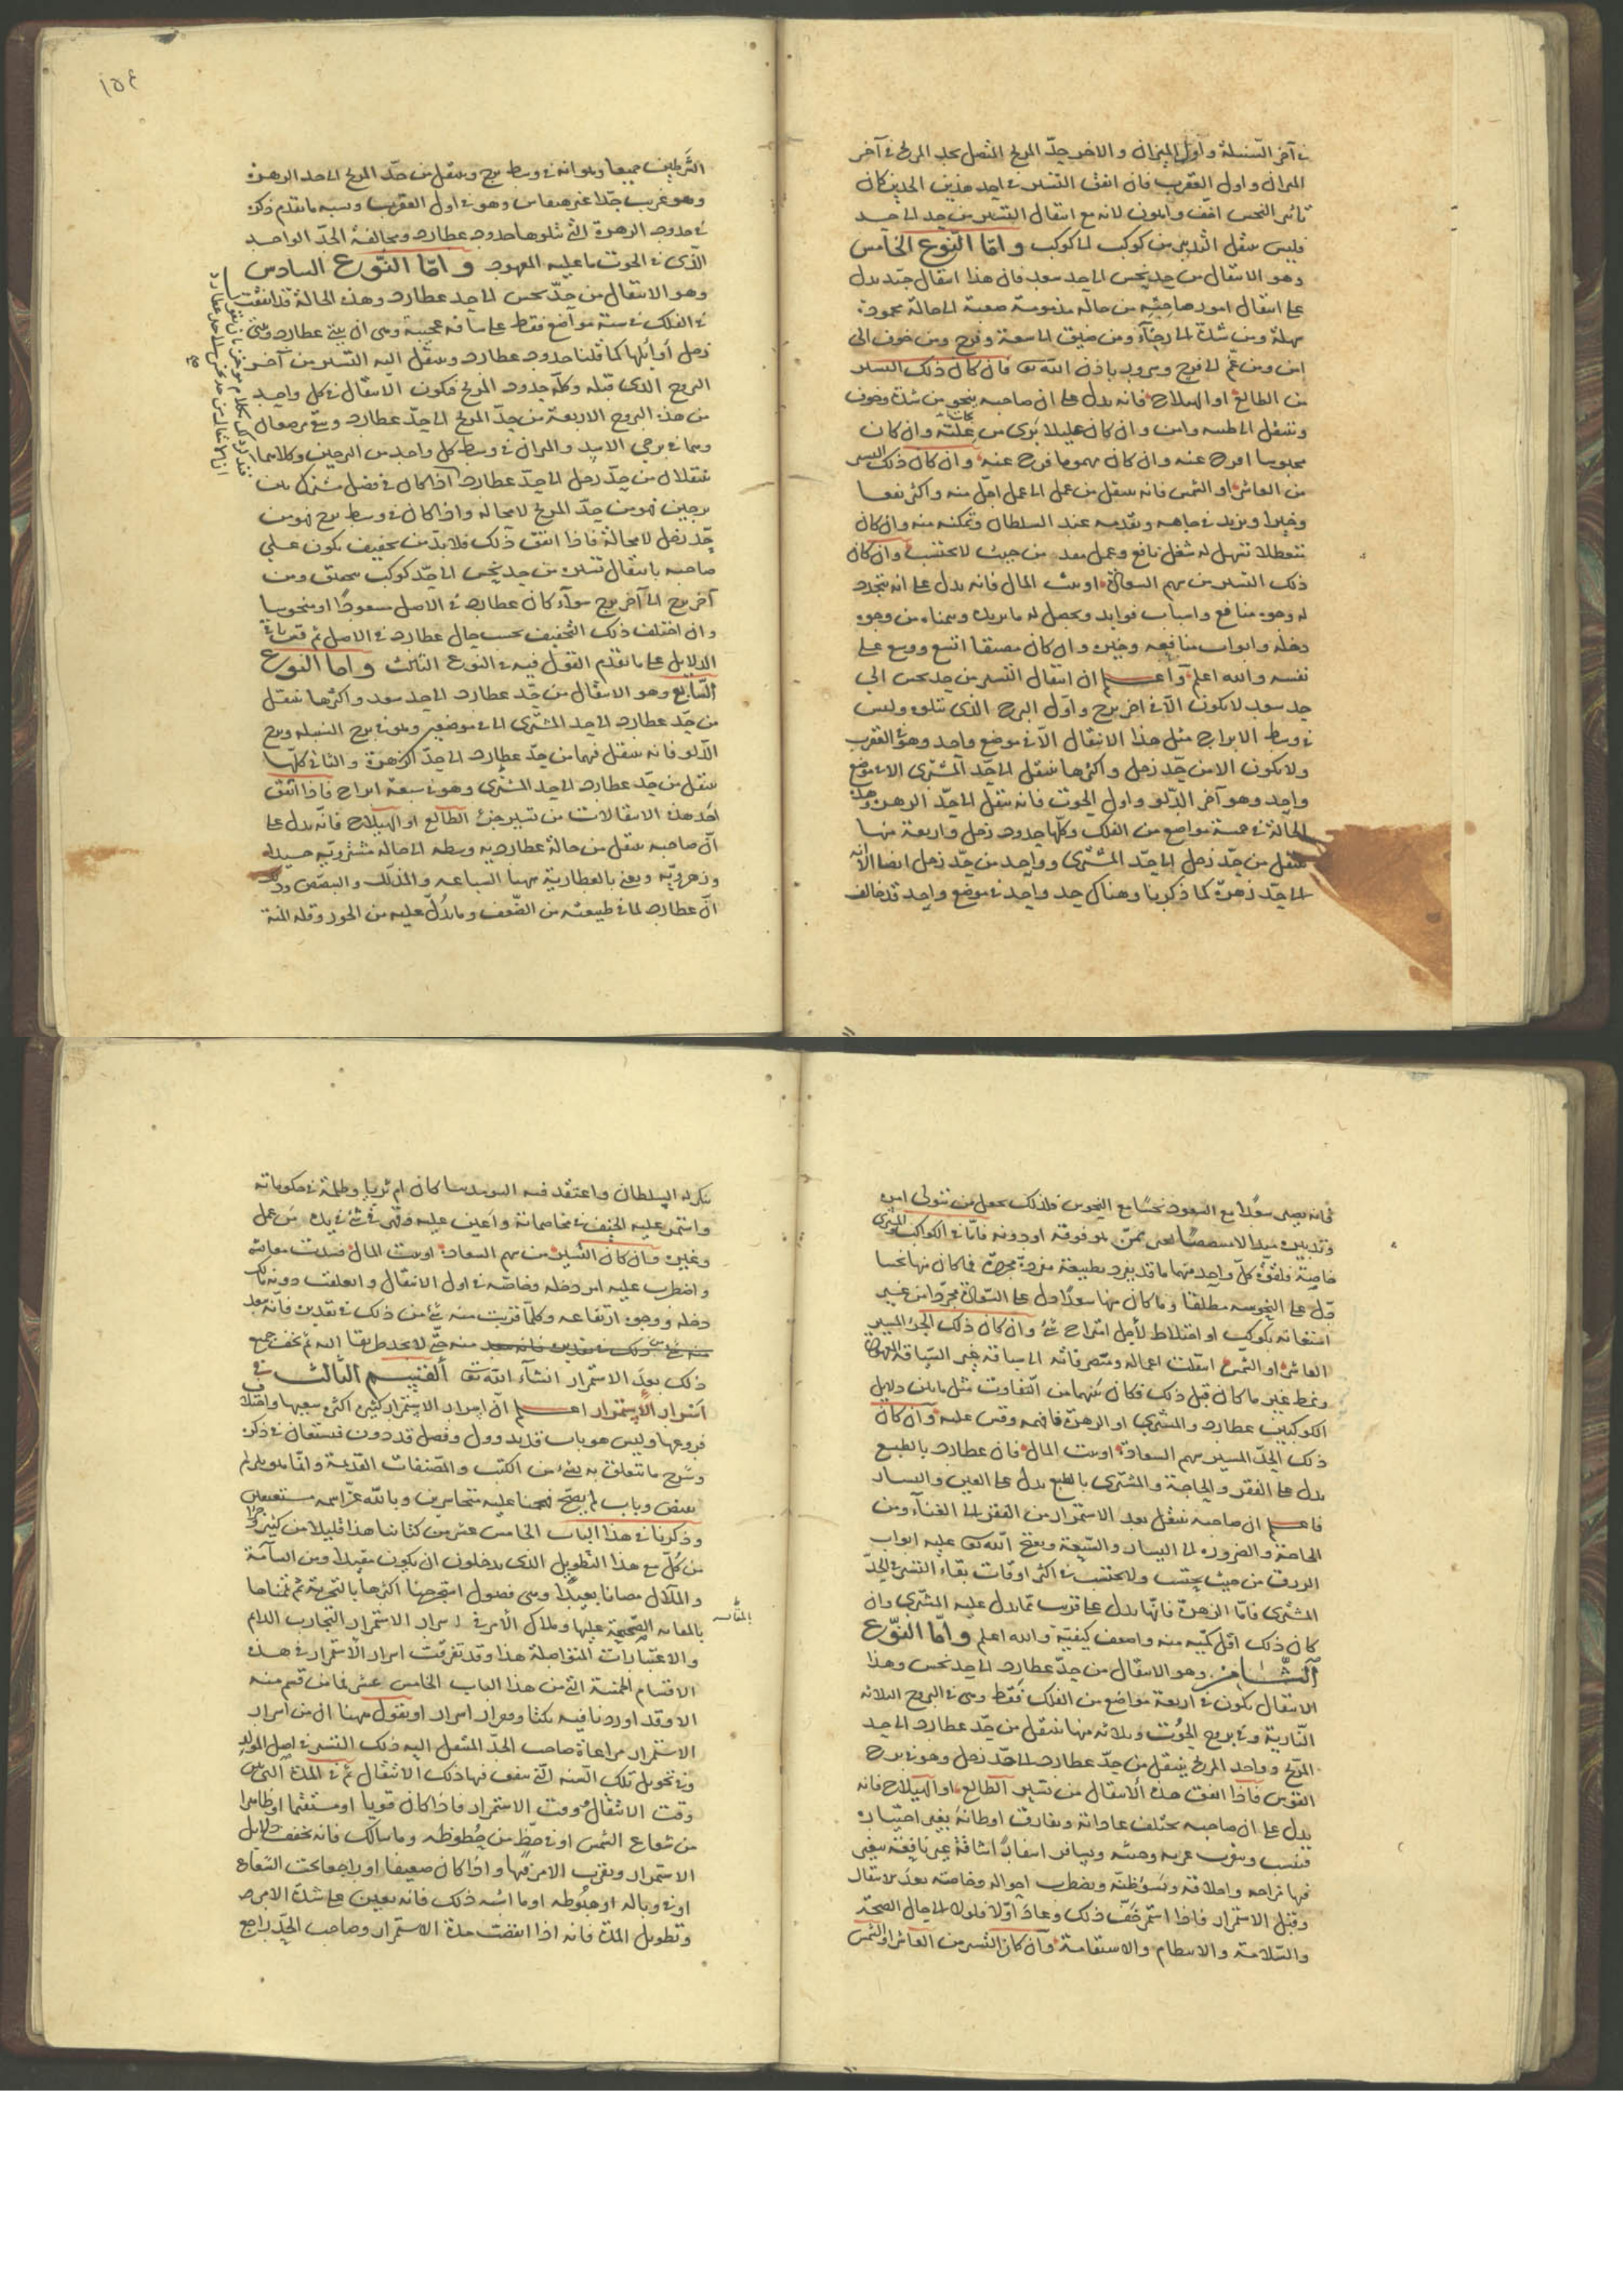 في آخر السنبلة وأول الميزان والاخر حدّ المريخ المتصل بحد المريخ في آخر
الميزان واول العقرب فان اتفق التسيير في احد هذين الحدين كان
تأثير النحس اخف وأهون لانه مع انتقال التسيير من حد الى حد
فليس ينتقل التدبير من كوكب الى كوكب واما النوع الخامس
وهو الانتقال من حد نحس الى حد سعد فان هذا انتقال جيد يدل
على انتقال امور صاحبه من حالة مذمومة صعبة الى حالة محمودة
سهلة ومن شدة الى رخاء ومن ضيق الى سعة وفرح ومن خوف الى
امن ومن غم الى فرح وسرور باذن الله تعالى فان كان ذلك التسيير
من الطالع او الهيلاج فانه يدل على ان صاحبه ينجو من شدة وخوف
وينتقل الى طيبة وامن وان كان عليلا برئ من علته وان كان
محبوسا افرج عنه وان كان مهموما فرج عنه وان كان ذلك التسيير
من العاشر او الشمس فانه ينتقل من عمل الى عمل اجل منه واكثر نفعا
وخيرا ويزيد في جاهه وتقدمه عند السلطان وتمكنه منه وان كان
متعطلا تسهل له شغل نافع وعمل من حيث لا يحتسب وان كان
ذلك التسيير من سهم السعادة او بيت المال فانه يدل على انه يتجدد
له وجوه منافع واسباب فوايد ويحصل له ما يريد ويتمناه من وجوه
دخله وابواب منافعه وخيره وان كان مضيقا اتسع ووسع على
نفسه والله اعلم واعلم ان انتقال التسيير من حد نحس الى
حد سعد لا يكون الا في اخر برج واول البرج الذي يتلوه وليس
في وسط الابراج مثل هذا الانتقال الا في موضع واحد وهو في العقرب
ولا يكون الا من حد زحل واكثرها ينتقل الى حد المشتري الا في موضع
واحد وهو آخر الدلو واول الحوت فانه ينتقل الى حد الزهرة وهذه
الحالة في خمسة مواضع من الفلك وكلها حدود زحل واربعة منها
تنتقل من حد زحل الى حد المشتري وواحد من حد زحل ايضا الا انه
الى حد زهرة كما ذكرنا وهناك حد واحد في موضع واحد قد خالف
١٥٤
الشرطين جميعا وهو انه في وسط برج وينتقل من حد المريخ الى حد الزهرة
وهو غريب جدا غير مقاس وهو في اول العقرب وسببه ما تقدم ذكره
في حدود الزهرة التي تتلوها حدود عطارد ومخالفة الحد الواحد
الذي في الحوت ما عليه المعهود واما النوع السادس
وهو الانتقال من حد نحس الى حد عطارد وهذه الحالة قد اتفقت
في الفلك في ستة مواضع فقط على مسافة عجيبة وهي ان بيتي عطارد وبيتي
زحل أوائلها كما قلنا حدود عطارد وينتقل اليه التسيير من آخر
البروج الذي قبله وكله حدود المريخ فيكون الانتقال في كل واحد
من هذه البروج الاربعة من حد المريخ الى حد عطارد وبقي موضعان
وهما في برجي الاسد والميزان في وسط كل واحد من البرجين وكلاهما
ينتقلان من حد زحل الى حد عطارد اذا كان في فصل مشترك بين
برجين فهو من حد المريخ لا محالة واذا كان في وسط برج فهو من
حد زحل لا محالة فاذا اتفق ذلك فلا بد من تخفيف يكون على
صاحبه بانتقال تسييره من حد نحس الى حد كوكب ومن
آخر برج الى آخر برج سواء كان عطارد في الاصل مسعودا او منحوسا
وان اختلف ذلك التخفيف بحسب حال عطارد في الاصل ثم
الدلايل على ما تقدم القول فيه في النوع الثالث واما النوع
السابع وهو الانتقال من حد عطارد الى حد سعد واكثرها ينتقل
من حد عطارد الى حد المشتري الا في موضعين وهو في برج السنبلة وبرج
الدلو فانه ينتقل فيهما من حد عطارد الى حد الزهرة والباقي كلها
تنتقل من حد عطارد الى حد المشتري وهو في سبعة ابراج فاذا اتفق
احد هذه الانتقالات من تسيير جزء الطالع او الهيلاج فانه يدل على
ان صاحبه ينتقل من حالة عطاردية وسطة الى حالة مشتروية حميدة
وزهروية ويعني بالعطاردية ههنا السباعه والتذلل والتبصبص وذلك
ان عطارد لما في طبيعته من الضعف وما يدل عليه من الخور وقلة المنة
فانه يصير سعدا مع السعود نحسا مع النحوس فلذلك يجعل من يتولى امره
خاصية فلقوة كل واحد منهما ما قد ينفرد بطبيعة منفردة مجردة فما كان منها نحسا
دل على النحوسة مطلقا وما كان منها سعدا دل على السعادة مجردا من غير
استعانة بكوكب او اختلاط لأجل امتزاج شئ وان كان ذلك الجزء المسير
العاشر او الشمس انتقلت اعماله ومتصرفاته الى سياقة غير السياقة المعهودة
ونمط غير ما كان قبل ذلك وكان بينهما من التفاوت مثل ما بين دلايل
الكوكبين عطارد والمشتري او الزهرة فافهمه وقس عليه وان كان
ذلك الحد المسير سهم السعادة او بيت المال فان عطارد بالطبع
يدل على الفقر والحاجة والمشتري بالطبع يدل على الغنى واليسار
فاعلم ان صاحبه ينتقل بعد الاستمرار من الفقر الى الغناء ومن
الحاجة والضرورة الى اليسار والسعة ويفتح الله تعالى عليه ابواب
الرزق من حيث يحتسب ولا يحتسب في اكثر اوقات بقاء التسيير في الحد
المشتري فاما الزهرة فانها تدل على قريب مما يدل عليه المشتري وان
كان ذلك اقل كمية منه واضعف كيفية والله اعلم واما النوع
الثامن وهو الانتقال من حد عطارد الى حد نحس وهذا
الانتقال يكون في اربعة مواضع من الفلك فقط وهي في البروج الثلاثة
النارية وفي برج الحوت وثلاثة منها تنتقل من حد عطارد الى حد
المريخ وواحد ينتقل من حد عطارد الى حد زحل وهو في برج
القوس فاذا اتفق هذه الانتقال من تسيير الطالع او الهيلاج فانه
يدل على ان صاحبه تختلف عاداته ويفارق اوطانه بغير اختياره
وقبل الاستمرار فاذا استمر خف ذلك وعاد اولا فاولا الى حال الصحة
والسلامة والانتظام والاستقامة وان كان التسيير من العاشر او الشمس
تنكر له السلطان واعتقد فيه السوء كان ام بريا وظلمه في حكوماته
واستمر عليه الحيف في مخاصماته واعين عليه وقهر في شئ في يده من عمل
وغيره وان كان التسيير من سهم السعادة او بيت المال فسدت معايشه
واضطرب عليه امر دخله وخاصة في اول الانتقال وانغلقت دونه
دخله ووجوه ارتفاعه وكلما قربت منه شئ من ذلك في تقديره فانه يبعد
منه حتى لا يجد طريقا اليه ثم يخف جميع
ذلك بعد الاستمرار انشاء الله تعالى القسم الثالث في
اسرار الاستمرار اعلم ان اسرار الاستمرار كثيرة اكثر
فروعها وليس هو باب قديم وفصل قد دون فيستعان في ذكره
وشرح ما يتعلق به بشئ من الكتب والمصنفات القديمة وانما هو علم لم
وذكرنا في هذا الباب الخامس عشر من كتابنا هذا قليلا من كثير وجزءا
من كل مع هذا التطويل الذي يدخلون ان يكون مقبلا ومن السآمة
والملال مصانا بعيدا وهي فصول استخرجنا اكثرها بالتجربة ثم
الصحيحة عليها وملاك الأمر في اسرار الاستمرار التجارب الدايم
والاعتبارات المتواصلة هذا وقد تفرقت اسرار الاستمرار في هذه
الاقسام الخمسة التي من هذا الباب الخامس عشر فما من قسم منه
الا وقد اوردنا فيه نكتا ومرار اسرار او نقول ههنا ان من اسرار
الاستمرار مراعاة صاحب الحد المنتقل اليه ذلك التسيير في اصل المولد
وفي تحويل تلك السنة التي يتفق فيها ذلك الانتقال ثم في المدة التي بين
وقت الانتقال ووقت الاستمرار فاذا كان قويا او مستقيما او ظاهرا
من شعاع الشمس او في حظ من حظوظه وما شاكله فانه يخفف دلايل
الاستمرار ويقرب الامر فيها واذا كان ضعيفا او راجعا تحت الشعاع
او في وباله او هبوطه او ما اشبه ذلك فانه يعين على شدة الامر
وتطويل المدة فانه اذا انقضت مدة الاستمرار وصاحب الحد راجع